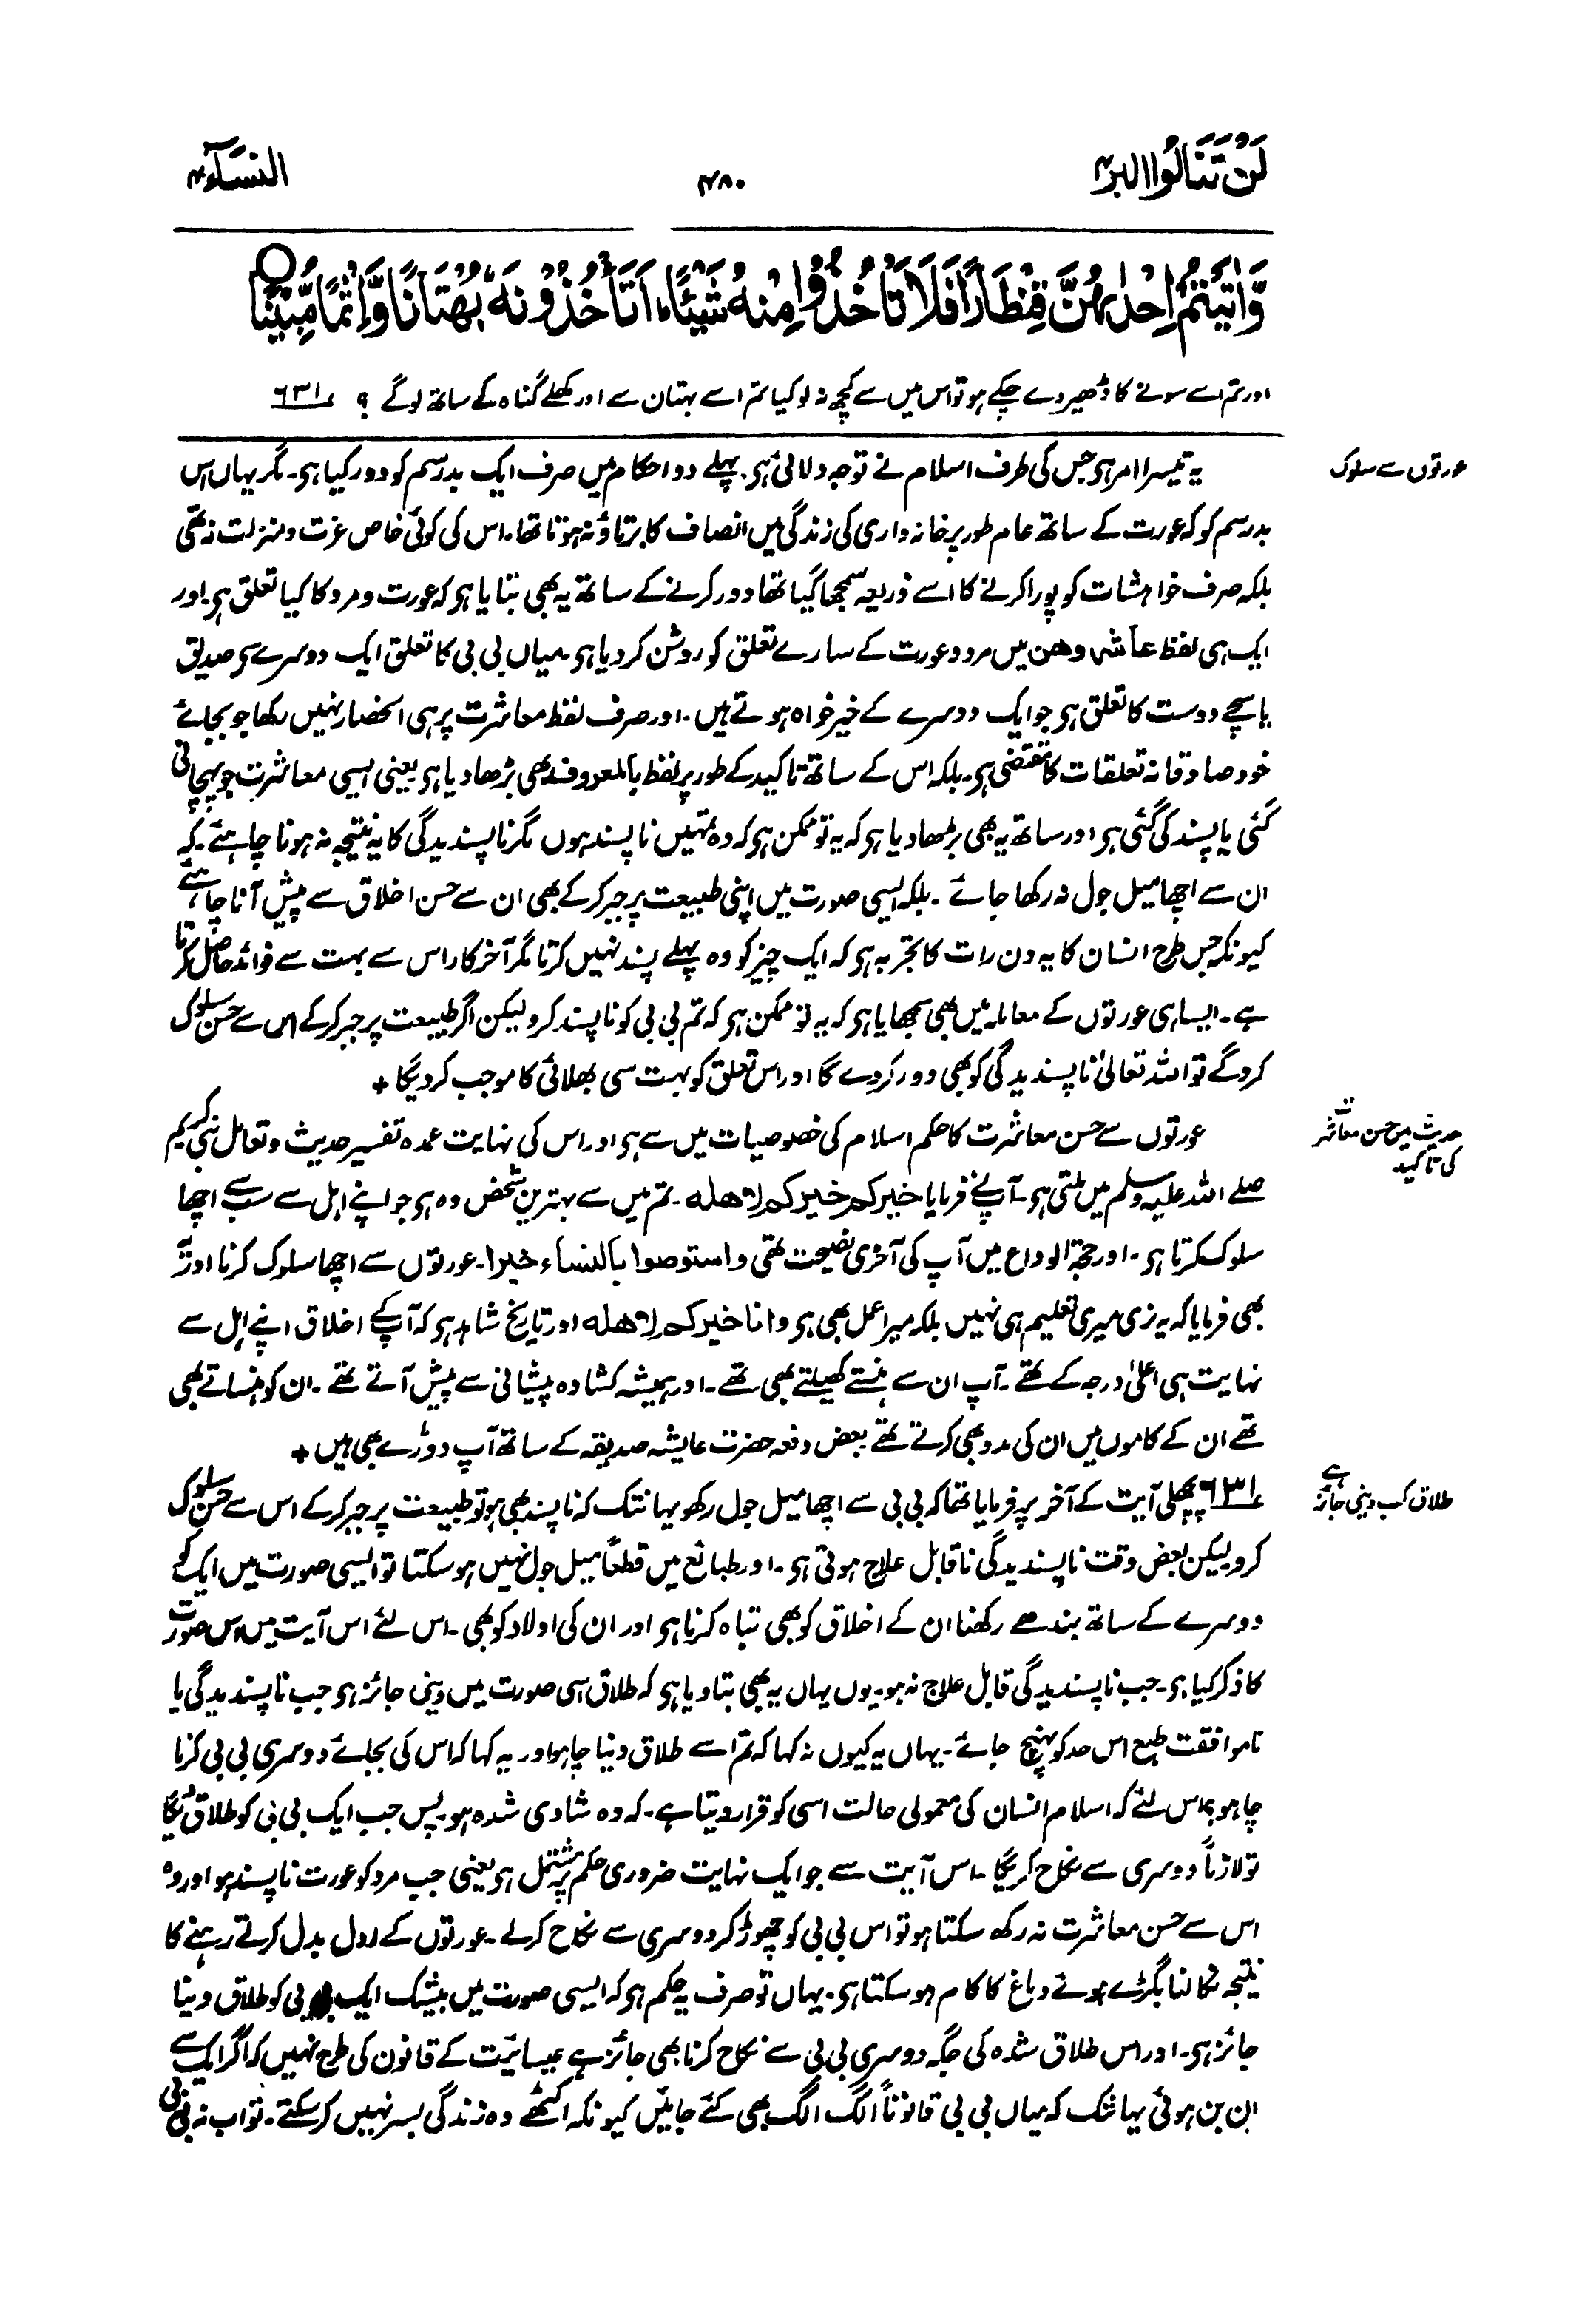 لَنْ تَنَالُوا البر ۴
۴۸۰
النساۤء ۴
وَّاٰتَيْتُمْ اِحْدٰىهُنَّ قِنْطَارًا فَلَا تَاْخُذُوْا مِنْهُ شَيْئًا ؕ اَتَاْخُذُوْنَهٗ بُهْتَانًا وَّاِثْمًا مُّبِيْنًا ○
اور تم اسے سونے کا ڈھیر دے چکے ہو تو اس میں سے کچھ نہ لو کیا تم اسے بہتان سے اور کھلے گناہ کے ساتھ لوگے ؟ ۶۳۱
عورتوں سے سلوک
یہ تیسرا امر ہی جس کی طرف اسلام نے توجہ دلائی ہی۔ پہلے دو احکام میں صرف ایک بد رسم کو دور کیا ہی۔ مگر یہاں اس
بد رسم کو کہ عورت کے ساتھ عام طور پر خانہ داری کی زندگی میں انصاف کا برتاؤ نہ ہوتا تھا۔ اس کی کوئی خاص عزت و منزلت نہ تھی
بلکہ صرف خواہشات کو پورا کرنے کا اسے ذریعہ سمجھا گیا تھا دور کرنے کے ساتھ یہ بھی بتایا ہی کہ عورت و مرد کا کیا تعلق ہی۔ اور
ایک ہی لفظ عاشروھن میں مرد و عورت کے سارے تعلق کو روشن کر دیا ہی۔ میاں بی بی کا تعلق ایک دوسرے سی صدیق
یا سچے دوست کا تعلق ہی جو ایک دوسرے کے خیر خواہ ہوتے ہیں۔ اور صرف لفظ معاشرت پر ہی انحصار نہیں رکھا جو بجائے
خود صادقانہ تعلقات کا مقتضی ہی۔ بلکہ اس کے ساتھ تاکید کے طور پر لفظ بالمعروف بھی بڑھا دیا ہی یعنی ایسی معاشرت جو پہچانی
گئی یا پسند کی گئی ہی اور ساتھ یہ بھی بڑھا دیا ہی کہ یہ تو ممکن ہی کہ وہ تمہیں ناپسند ہوں مگر ناپسندیدگی کا یہ نتیجہ نہ ہونا چاہئے۔ کہ
ان سے اچھا میل جول نہ رکھا جائے۔ بلکہ ایسی صورت میں اپنی طبیعت پر جبر کرکے بھی ان سے حسن اخلاق سے پیش آنا چاہئے
کیونکہ جس طرح انسان کا یہ دن رات کا تجربہ ہی کہ ایک چیز کو وہ پہلے پسند نہیں کرتا مگر آخر کار اس سے بہت سے فوائد حاصل کرتا
ہے۔ ایسا ہی عورتوں کے معاملہ میں بھی سمجھایا ہی کہ یہ تو ممکن ہی کہ تم بی بی کو ناپسند کرو لیکن اگر طبیعت پر جبر کرکے اس سے حسن سلوک
کروگے تو اللہ تعالیٰ ناپسندیدگی کو بھی دور کردے گا اور اس تعلق کو بہت سی بھلائی کا موجب کردیگا +
حدیث میں حسن معاشرت
کی تاکید
عورتوں سے حسن معاشرت کا حکم اسلام کی خصوصیات میں سے ہی اور اس کی نہایت عمدہ تفسیر حدیث و تعامل نبی کریم
صلے اللہ علیہ وسلم میں ملتی ہی۔ آپنے فرمایا خیرکم خیرکم لاھلہ۔ تم میں سے بہترین شخص وہ ہی جو اپنے اہل سے سب سے اچھا
سلوک کرتا ہی۔ اور حجۃ الوداع میں آپ کی آخری نصیحت تھی واستوصوا بالنساء خیرا۔ عورتوں سے اچھا سلوک کرنا اور یہ
بھی فرمایا کہ یہ نری میری تعلیم ہی نہیں بلکہ میرا عمل بھی ہی وانا خیرکم لاھلہ اور تاریخ شاہد ہی کہ آپ کے اخلاق اپنے اہل سے
نہایت ہی اعلیٰ درجہ کے تھے۔ آپ ان سے ہنستے کھیلتے بھی تھے۔ اور ہمیشہ کشادہ پیشانی سے پیش آتے تھے۔ ان کو ہنساتے بھی
تھے ان کے کاموں میں ان کی مدد بھی کرتے تھے بعض دفعہ حضرت عایشہ صدیقہ کے ساتھ آپ دوڑے بھی ہیں +
طلاق کب دینی جائز ہے
۶۳۱ پچھلی آیت کے آخر پر فرمایا تھا کہ بی بی سے اچھا میل جول رکھو یہانتک کہ ناپسند بھی ہو تو طبیعت پر جبر کرکے اس سے حسن سلوک
کرو لیکن بعض وقت ناپسندیدگی ناقابل علاج ہوتی ہی۔ اور طبائع میں قطعاً میل جول نہیں ہو سکتا تو ایسی صورت میں ایک کو
دوسرے کے ساتھ بندھے رکھنا ان کے اخلاق کو بھی تباہ کرنا ہی اور ان کی اولاد کو بھی۔ اس لئے اس آیت میں اس صورت
کا ذکر کیا ہی۔ جب ناپسندیدگی قابل علاج نہ ہو۔ یوں یہاں یہ بھی بتا دیا ہی کہ طلاق اسی صورت میں دینی جائز ہی جب ناپسندیدگی یا
ناموافقت طبع اس حد کو پہنچ جائے۔ یہاں یہ کیوں نہ کہا کہ تم اسے طلاق دینا چاہو اور یہ کہا کہ اس کی بجائے دوسری بی بی کرنا
چاہو؟ اس لئے کہ اسلام انسان کی معمولی حالت اسی کو قرار دیتا ہے۔ کہ وہ شادی شدہ ہو۔ پس جب ایک بی بی کو طلاق دیگا
تو لازماً دوسری سے نکاح کریگا۔ اس آیت سے جو ایک نہایت ضروری حکم پر مشتمل ہی یعنی جب مرد کو عورت ناپسند ہو اور وہ
اس سے حسن معاشرت نہ رکھ سکتا ہو تو اس بی بی کو چھوڑ کر دوسری سے نکاح کرلے۔ عورتوں کے ادل بدل کرتے رہنے کا
نتیجہ نکالنا بگڑے ہوئے دماغ کا کام ہو سکتا ہی۔ یہاں تو صرف یہ حکم ہی کہ ایسی صورت میں بیشک ایک بی بی کو طلاق دینا
جائز ہی۔ اور اس طلاق شدہ کی جگہ دوسری بی بی سے نکاح کرنا بھی جائز ہے عیسائیت کے قانون کی طرح نہیں کہ اگر ایک سے
ان بن ہوئی یہانتک کہ میاں بی بی قانوناً الگ الگ بھی کئے جائیں کیونکہ اکٹھے وہ زندگی بسر نہیں کرسکتے۔ تو اب نہ بی بی